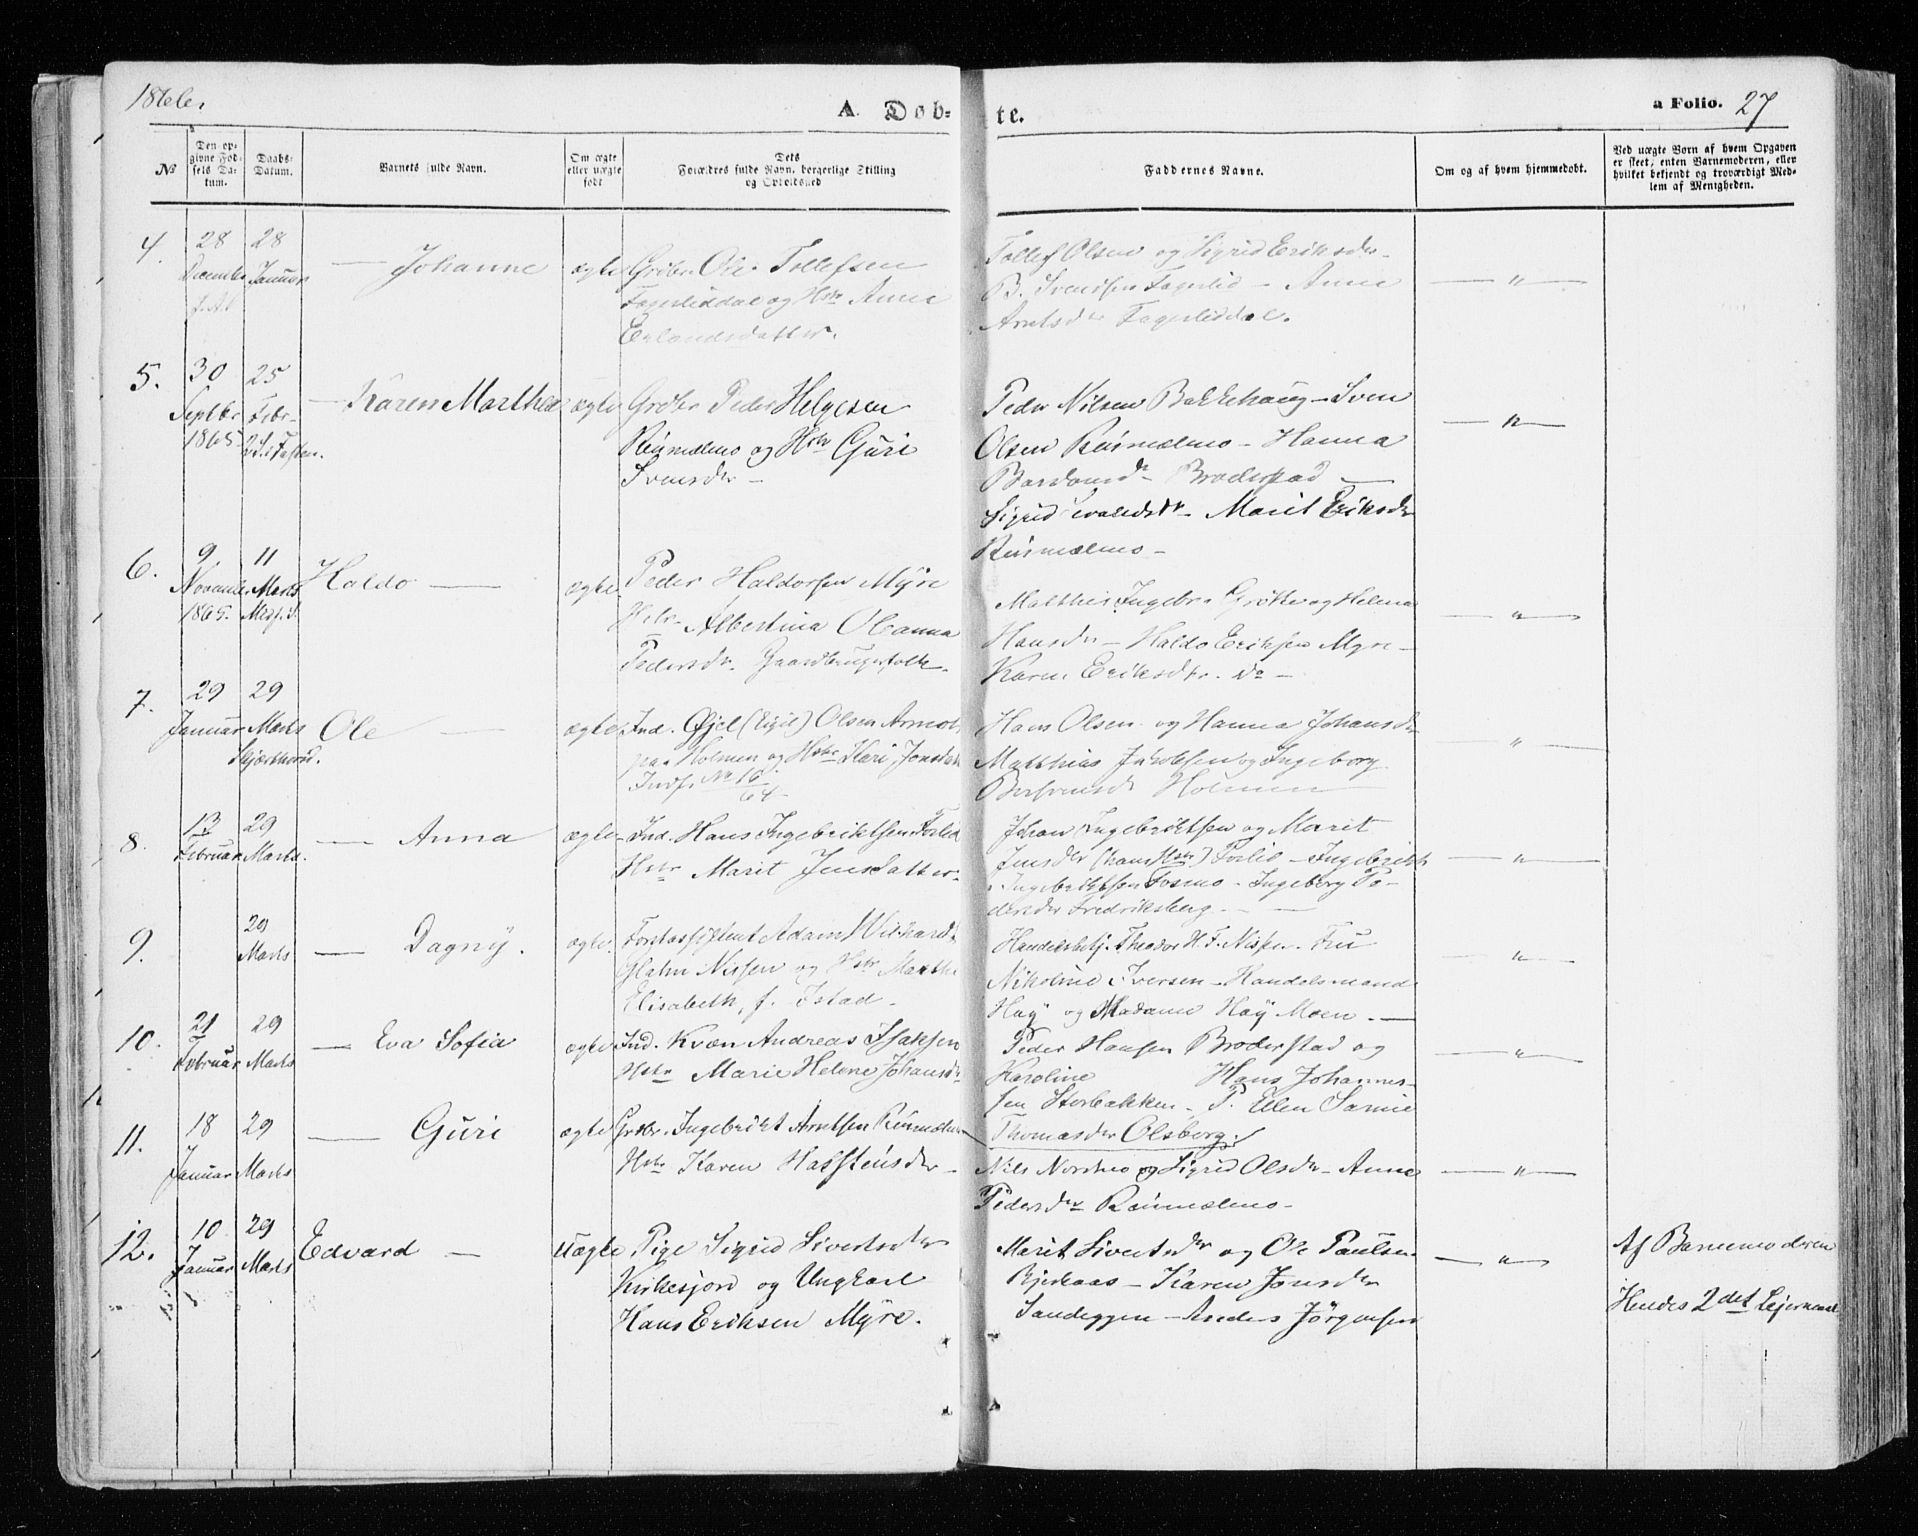 1866.
A. Døb-
te.
a Folio. 27
No
Den opgivne Fødsels Datum.
Daabs-Datum.
Barnets fulde Navn.
Om ægte eller uægte født
Dets Forældres fulde Navn, borgerlige Stilling og Opholdssted
Faddernes Navne.
Om og af hvem hjemmedøbt.
Ved uægte Børn af hvem Opgaven er skeet, enten Barnemoderen, eller hvilket bekjendt og troværdigt Medlem af Menigheden.
4.
28 December f. A.
28 Januar
— Johanne
ægte
Grbr. Ole Tollefsen
Fagerliddal og Hstr Anne
Erlandsdatter.
Tollef Olsen og Sigrid Eriksdr
B. Svendsen Fagerlid — Anne
Arntsdr Fagerliddal.
— " —
5.
30 Septbr 1865
25 Febr. 2 S. i Fasten.
— Karen Marthea
ægte
Grbr Peder Helgesen
Rusmælmo og Hstr Guri
Svensdr —
Peder Nilsen Bakkehaug — Sven
Olsen Rusmælmo — Hanna
Bardounsdr Broderstad —
Sigrid Sivaldsdr — Marit Eriksdr
Rusmælmo —
— " —
6.
9 November 1865.
11 Marts
Haldo —
ægte
Peder Haldorsen Myre
Hstr Albertina Oleanna
Pedersdr. Gaardbrugerfolk.
Matthis Ingebr. Grøtte og Helena
Hansdr — Haldo Eriksen Myre —
Karen Eriksdtr. do —
— " —
7.
29 Januar
29 Marts Skjærthorsd.
Ole —
ægte
Ind. Øjel (Eigil) Olsen
paa Holmen og Hstr Kari Jonsdtr
No 16/64
Hans Olsen og Hanna Johansdr
Matthias Jakobsen og Ingeborg
Holmen
"
8.
13 Februar
29 Marts.
— Anna
ægte
Ind. Hans Ingebriktsen Foslid
Hstr Marit Jensdatter
Johan Ingebriktsen og Marit
Jensdr (hans Hstr) Foslid — Ingebrikt
Ingebriktsen Fosmo — Ingeborg Pe-
dersdr Fredriksberg. —
— " —
9.
29 Marts
— Dagny.
ægte
Forstassistent Adam Wilhard
Glahn Nissen og Hstr Marthe
Elisabeth, f. Istad.
Handelsbetj. Theodor H. F. Nissen. Fru
Nikoline Iversen — Handelsmand
Høy og Madame Høy Moen. —
"
10.
21 Februar
29 Marts
— Eva Sofia
ægte
Ind. Kvæn Andreas Isaksen
Hstr Marie Helene Johansdr
Peder Hansen Broderstad og
Karoline Hans Johannes-
sen Storbakken — P. Ellen Samie
Thomasdr Olsborg.
— " —
11.
18 Januar
29 Marts
— Guri
ægte
Grbr. Ingebrikt Arntsen Rusmælmo
Hstr Karen Halstensdr —
Nils Nordmo og Sigrid Olsdr — Anne
Pedersdr Rusmælmo —
— " —
12.
10 Januar
29 Marts
Edvard —
uægte
Pige Sigrid Sivertsdr
Kirkesjord og Ungkarl
Hans Eriksen Myre.
Marit Sivertsdr og Ole Paulsen
Bjerkaas — Karen Jonsdr
Sandeggen — Anders Jørgensen
— " —
Af Barnemoderen
Hendes 2det Leiermaal